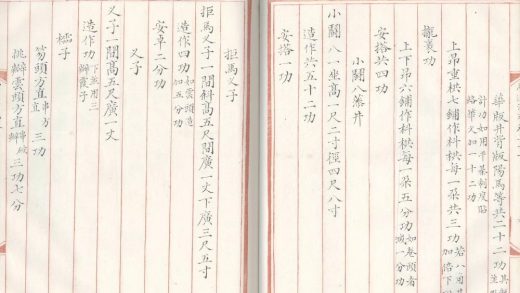 華版井背版陽馬等共二十二功
計功如用平棊制度貼
絡華文加一十二功
上昂重栱七鋪作枓栱每一朶共三功
攏裹功
上下昂六鋪作枓栱每一朶五分功如卷頭者減一分功
安搭共四功
小鬭八藻井
小鬭八一坐高一尺二寸徑四尺八寸
造作共五十二功
安搭一功
拒馬叉子
拒馬叉子一間斜高五尺間廣一丈下廣三尺五寸
造作四功如雲頭造加五分功
安卓二分功
叉子
叉子一間高五尺廣一丈
造作功下並用三瓣霞子
櫺子
笏頭方直串方直三功
挑瓣雲頭方直串破瓣三功七分